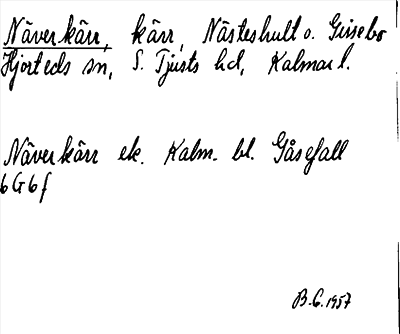 Näverkärr, kärr, Nästeshult o. Gissebo
Hjorteds sn, S. Tjusts hd, Kalmar l.
Näverkärr ek. Kalm. bl. Gåsefall
6G6f
B.G. 1957